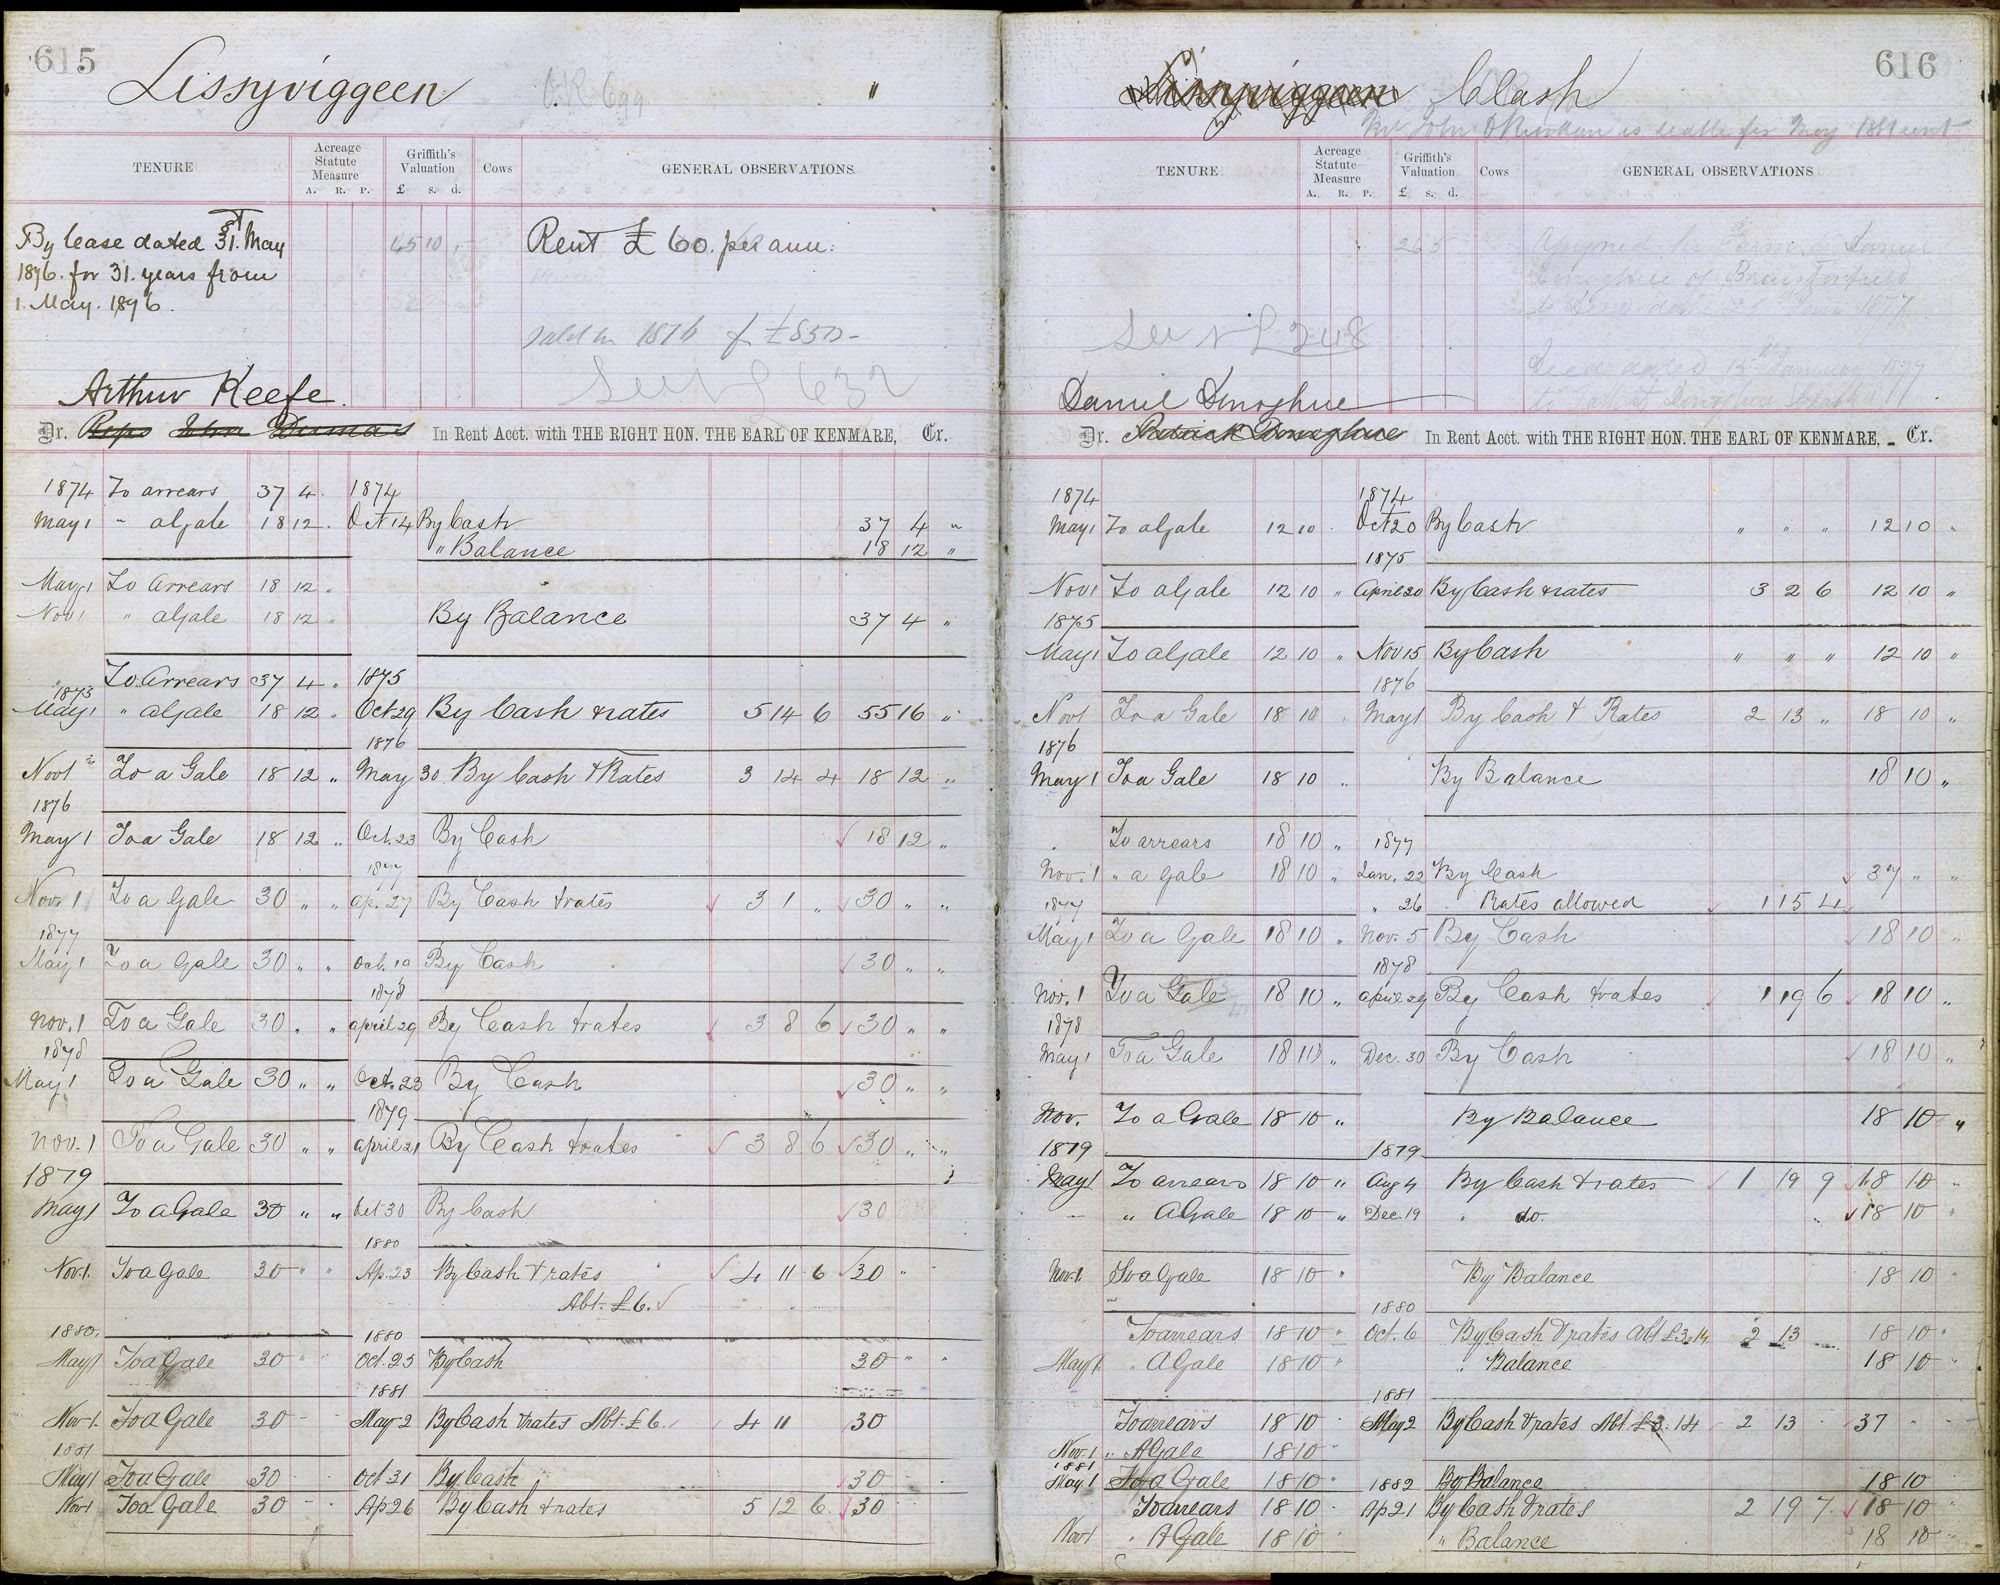 615
Lissyviggeen
"
TENURE
Acreage Statute Measure
A. R. P.
Griffith's Valuation
£ s. d.
Cows
GENERAL OBSERVATIONS
By lease dated 31st May
1876. for 31. years from
1. May. 1876.
45 10
Rent £ 60. per ann:
1876
£850
632
Arthur Keefe.
Dr. Reps John In Rent Acct. with THE RIGHT HON. THE EARL OF KENMARE, Cr.
1874 To arrears 37 4 . 1874
May 1 " a Gale 18 12 . Oct 14 By Cash 37 4 "
" Balance 18 12 "
May 1 To Arrears 18 12 "
Nov 1 " a Gale 18 12 " By Balance 37 4 "
" To Arrears 37 4 " 1875
1873
May 1 " a Gale 18 12 " Oct 29 By Cash & rates 5 14 6 55 16 "
1876
Nov 1 To a Gale 18 12 " May 30 By Cash & Rates 3 14 4 18 12 "
1876
May 1 To a Gale 18 12 " Oct. 23 By Cash 18 12 "
1877
Nov. 1 To a Gale 30 " " Ap. 27 By Cash & rates 3 1 " 30 " "
1877
May 1 To a Gale 30 " " Oct. 19 By Cash 30 " "
1878
Nov. 1 To a Gale 30 " " April 29 By Cash & rates 3 8 6 30 " "
1878
May 1 To a Gale 30 " " Oct. 23 By Cash 30 " "
1879
Nov. 1 To a Gale 30 " " April 21 By Cash & rates 3 8 6 30 " "
1879
May 1 To a Gale 30 " " Oct 30 By Cash 30
1880
Nov. 1. To a Gale 30 " " Ap. 23 By Cash & rates 4 11 6 30 "
Abt. £6.
1880. 1880
May 1 To a Gale 30 " " Oct. 25 By Cash 30 " "
1881
Nov 1. To a Gale 30 May 2 By Cash & rates Abt. £6. 4 11 30
1881
May 1 To a Gale 30 Oct 31 By Cash 30
Nov 1 To a Gale 30 Ap 26 By Cash & rates 5 12 6 30
616
Lissyviggeen Clash
Mr John O Riordan is liable for May 1881 rent
TENURE
Acreage Statute Measure
A. R. P.
Griffith's Valuation
£ s. d.
Cows
GENERAL OBSERVATIONS
26 5
Daniel
1877
248
Daniel Donoghue
Dr. Patrick Donoghue In Rent Acct. with THE RIGHT HON. THE EARL OF KENMARE, Cr.
1874 1874
May 1 To a Gale 12 10 . Oct 20 By Cash " " " 12 10 "
1875
Nov 1 To a Gale 12 10 " April 20 By Cash & rates 3 2 6 12 10 "
1875
May 1 To a Gale 12 10 " Nov 15 By Cash " " " 12 10 "
1876
Nov 1 To a Gale 18 10 May 1 By Cash & Rates 2 13 " 18 10 "
1876
May 1 To a Gale 18 10 " By Balance 18 10 "
To arrears 18 10 " 1877
Nov. 1 " a gale 18 10 " Jan. 22 By Cash 37 " "
1877 " 26 Rates allowed 1 15 4
May 1 To a Gale 18 10 " Nov. 5 By Cash 18 10 "
1878
Nov. 1 To a Gale 18 10 " April 29 By Cash & rates 1 19 6 18 10 "
1878
May 1 To a Gale 18 10 " Dec. 30 By Cash 18 10 "
Nov. To a Gale 18 10 " By Balance 18 10 "
1879 1879
May 1 To arrears 18 10 " Aug 4 By Cash & rates 1 19 9 18 10 "
" A Gale 18 10 " Dec. 19 " do. 18 10 "
Nov. 1. To a Gale 18 10 " By Balance 18 10
1880
To arrears 18 10 " Oct. 6 By Cash & rates Abt £3.14 2 13 18 10 "
May 1 " A Gale 18 10 " " Balance 18 10
1881
To arrears 18 10 May 2 By Cash & rates Abt. £3.14 2 13 37
Nov. 1 " A Gale 18 10
1881
May 1 To a Gale 18 10 " 1882 By Balance 18 10
To arrears 18 10 Ap 21 By Cash & rates 2 19 7 18 10
Nov 1 " A Gale 18 10 " Balance 18 10